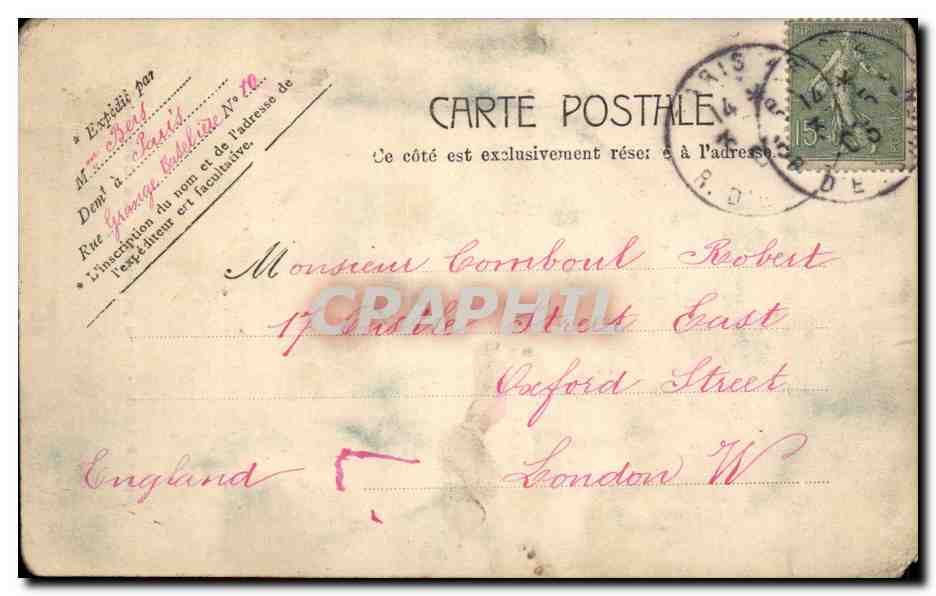 * Expédié par
M Bers
Demt à Paris
Rue Grange Batelière No 10
* L'inscription du nom et de l'adresse de
l'expéditeur est facultative.
CARTE POSTALE
Ce côté est exclusivement réser é à l'adresse.
15
14
14
R. D
D E
Monsieur Comboul Robert
17 Castle Street East
Oxford Street
London W
England
CPAPHIL